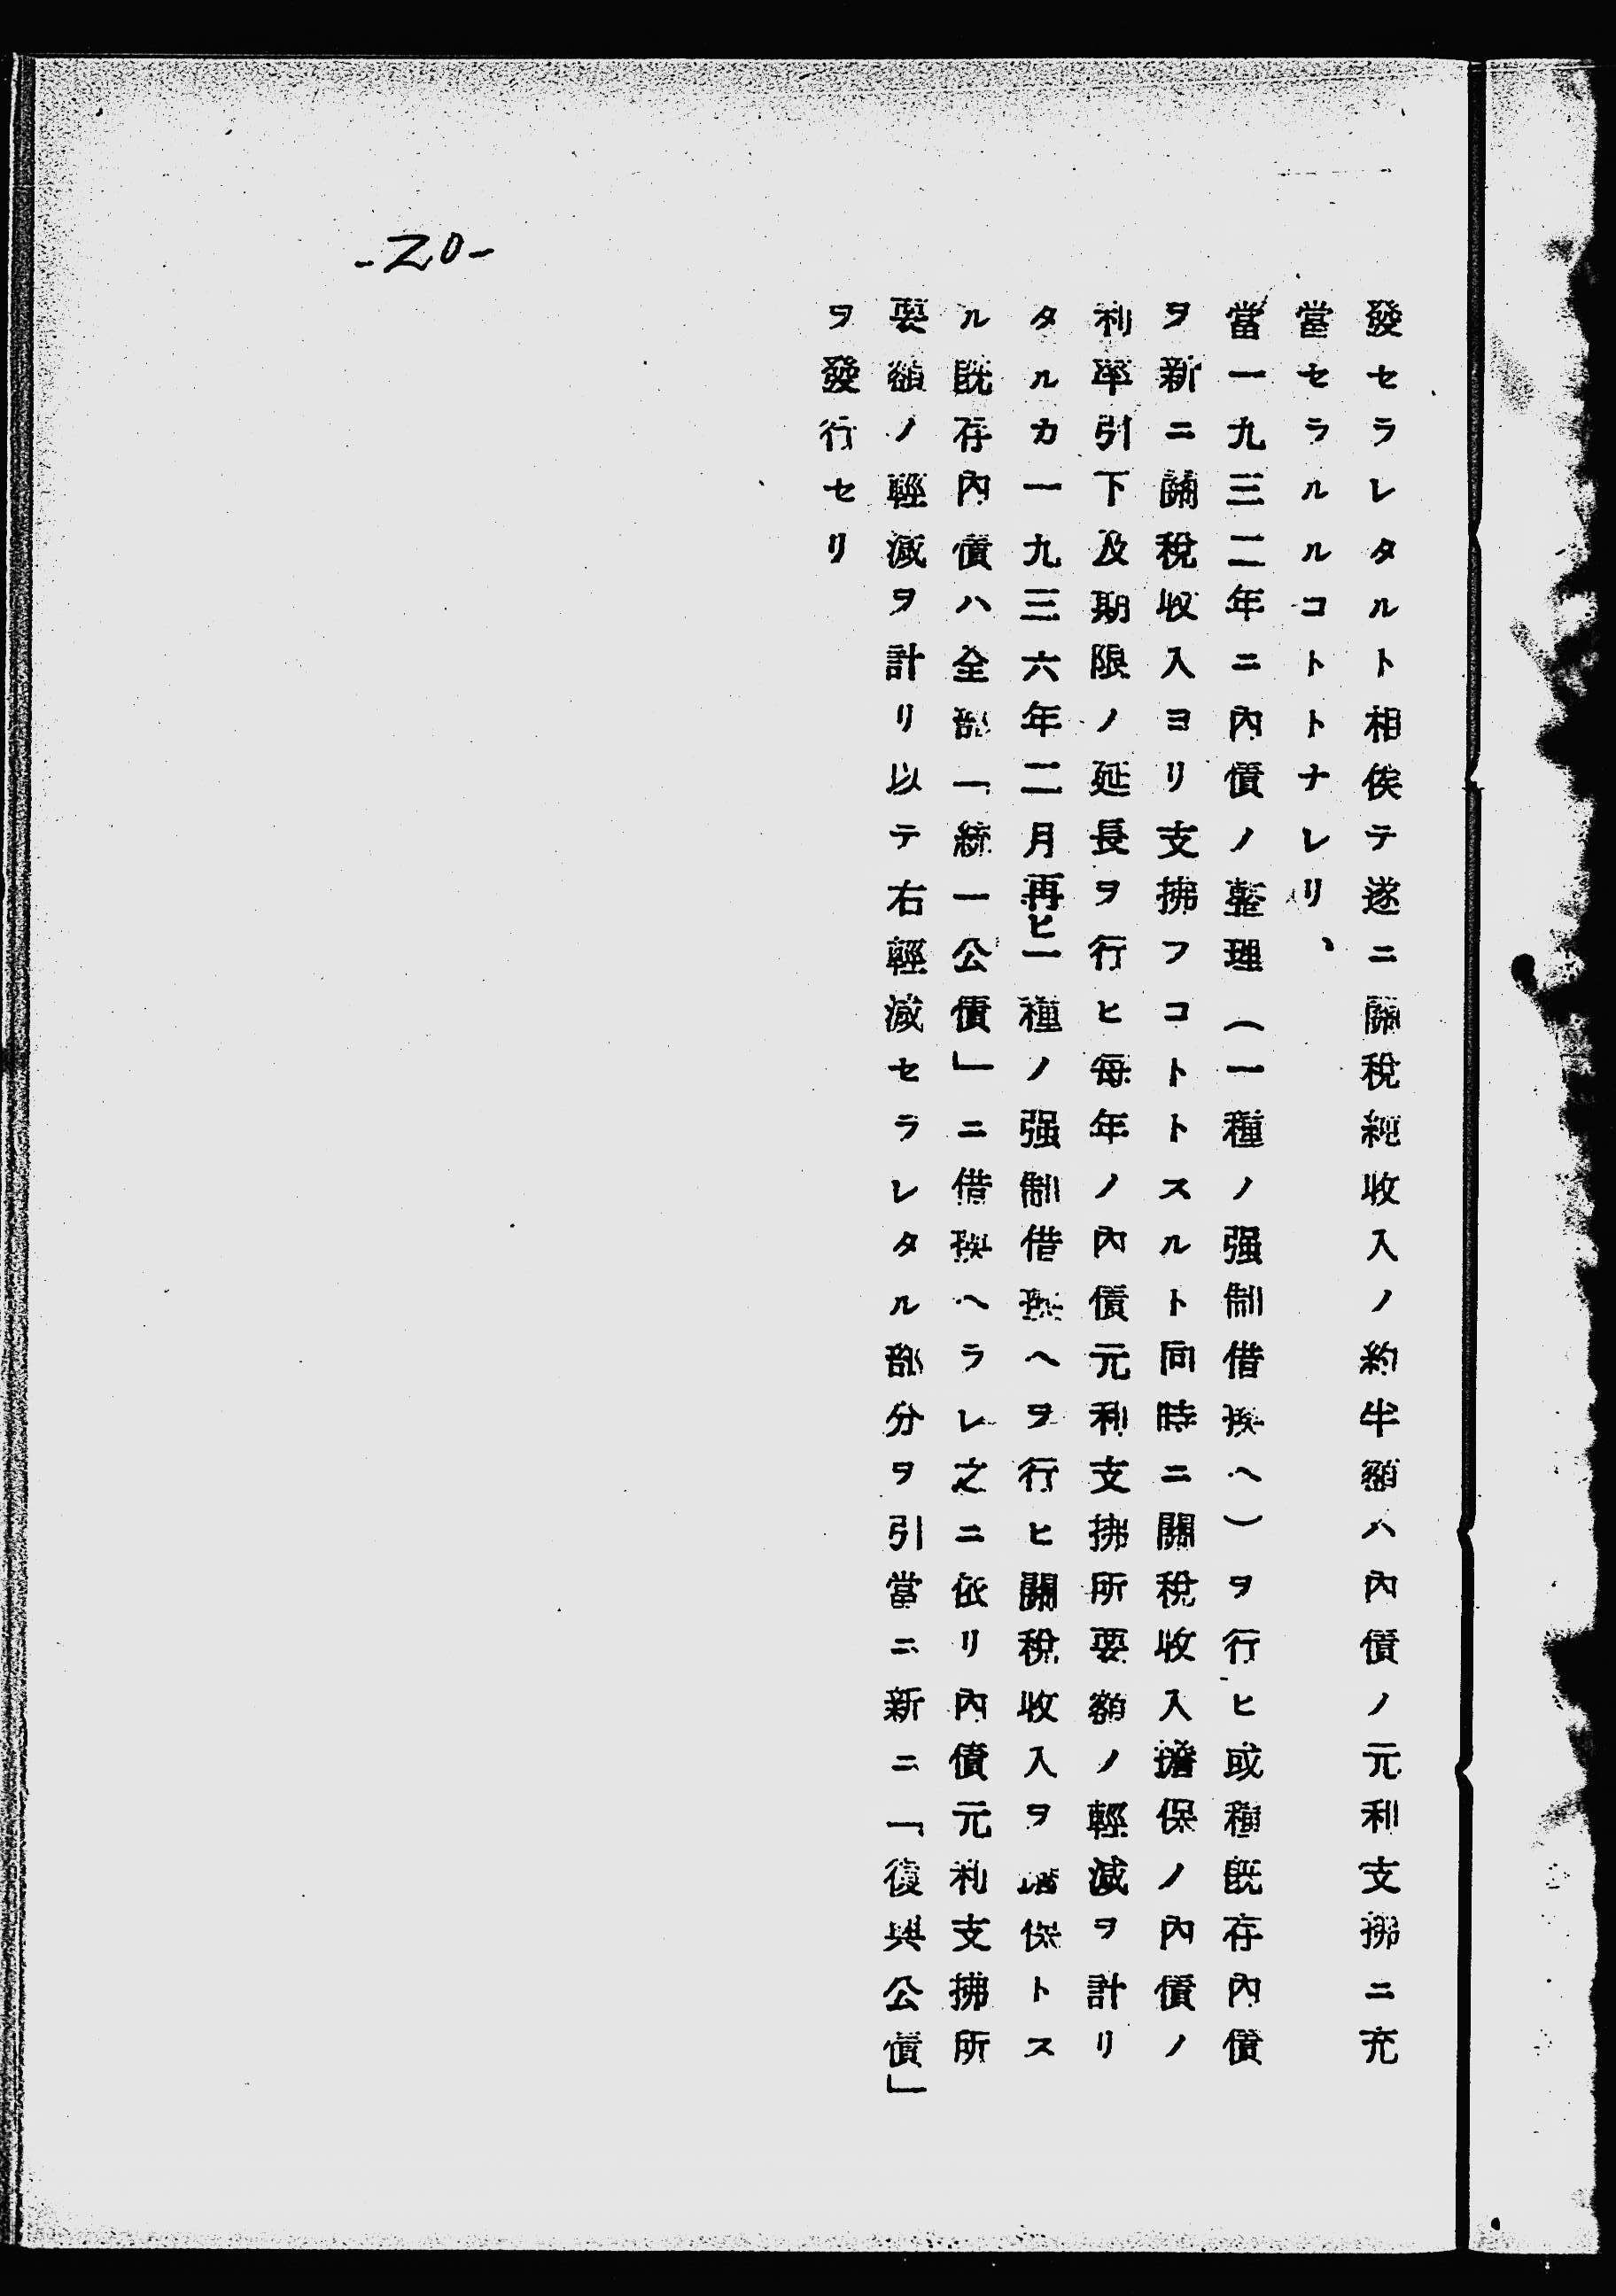 發セラレタルト相俟テ遂ニ關稅純收入ノ約半額ハ內債ノ元利支拂ニ充
當セラルルコトトナレリ、
當一九三二年ニ內債ノ整理（一種ノ强制借換ヘ）ヲ行ヒ或種既存內債
ヲ新ニ關稅收入ヨリ支拂フコトトスルト同時ニ關稅收入擔保ノ內債ノ
利率引下及期限ノ延長ヲ行ヒ每年ノ內債元利支拂所要額ノ輕減ヲ計リ
タルカ一九三六年二月再ヒ一種ノ强制借換ヘヲ行ヒ關稅收入ヲ擔保トス
ル既存內債ハ全部「統一公債」ニ借換ヘラレ之ニ依リ內債元利支拂所
要額ノ輕減ヲ計リ以テ右輕減セラレタル部分ヲ引當ニ新ニ「復興公債」
ヲ發行セリ
-20-